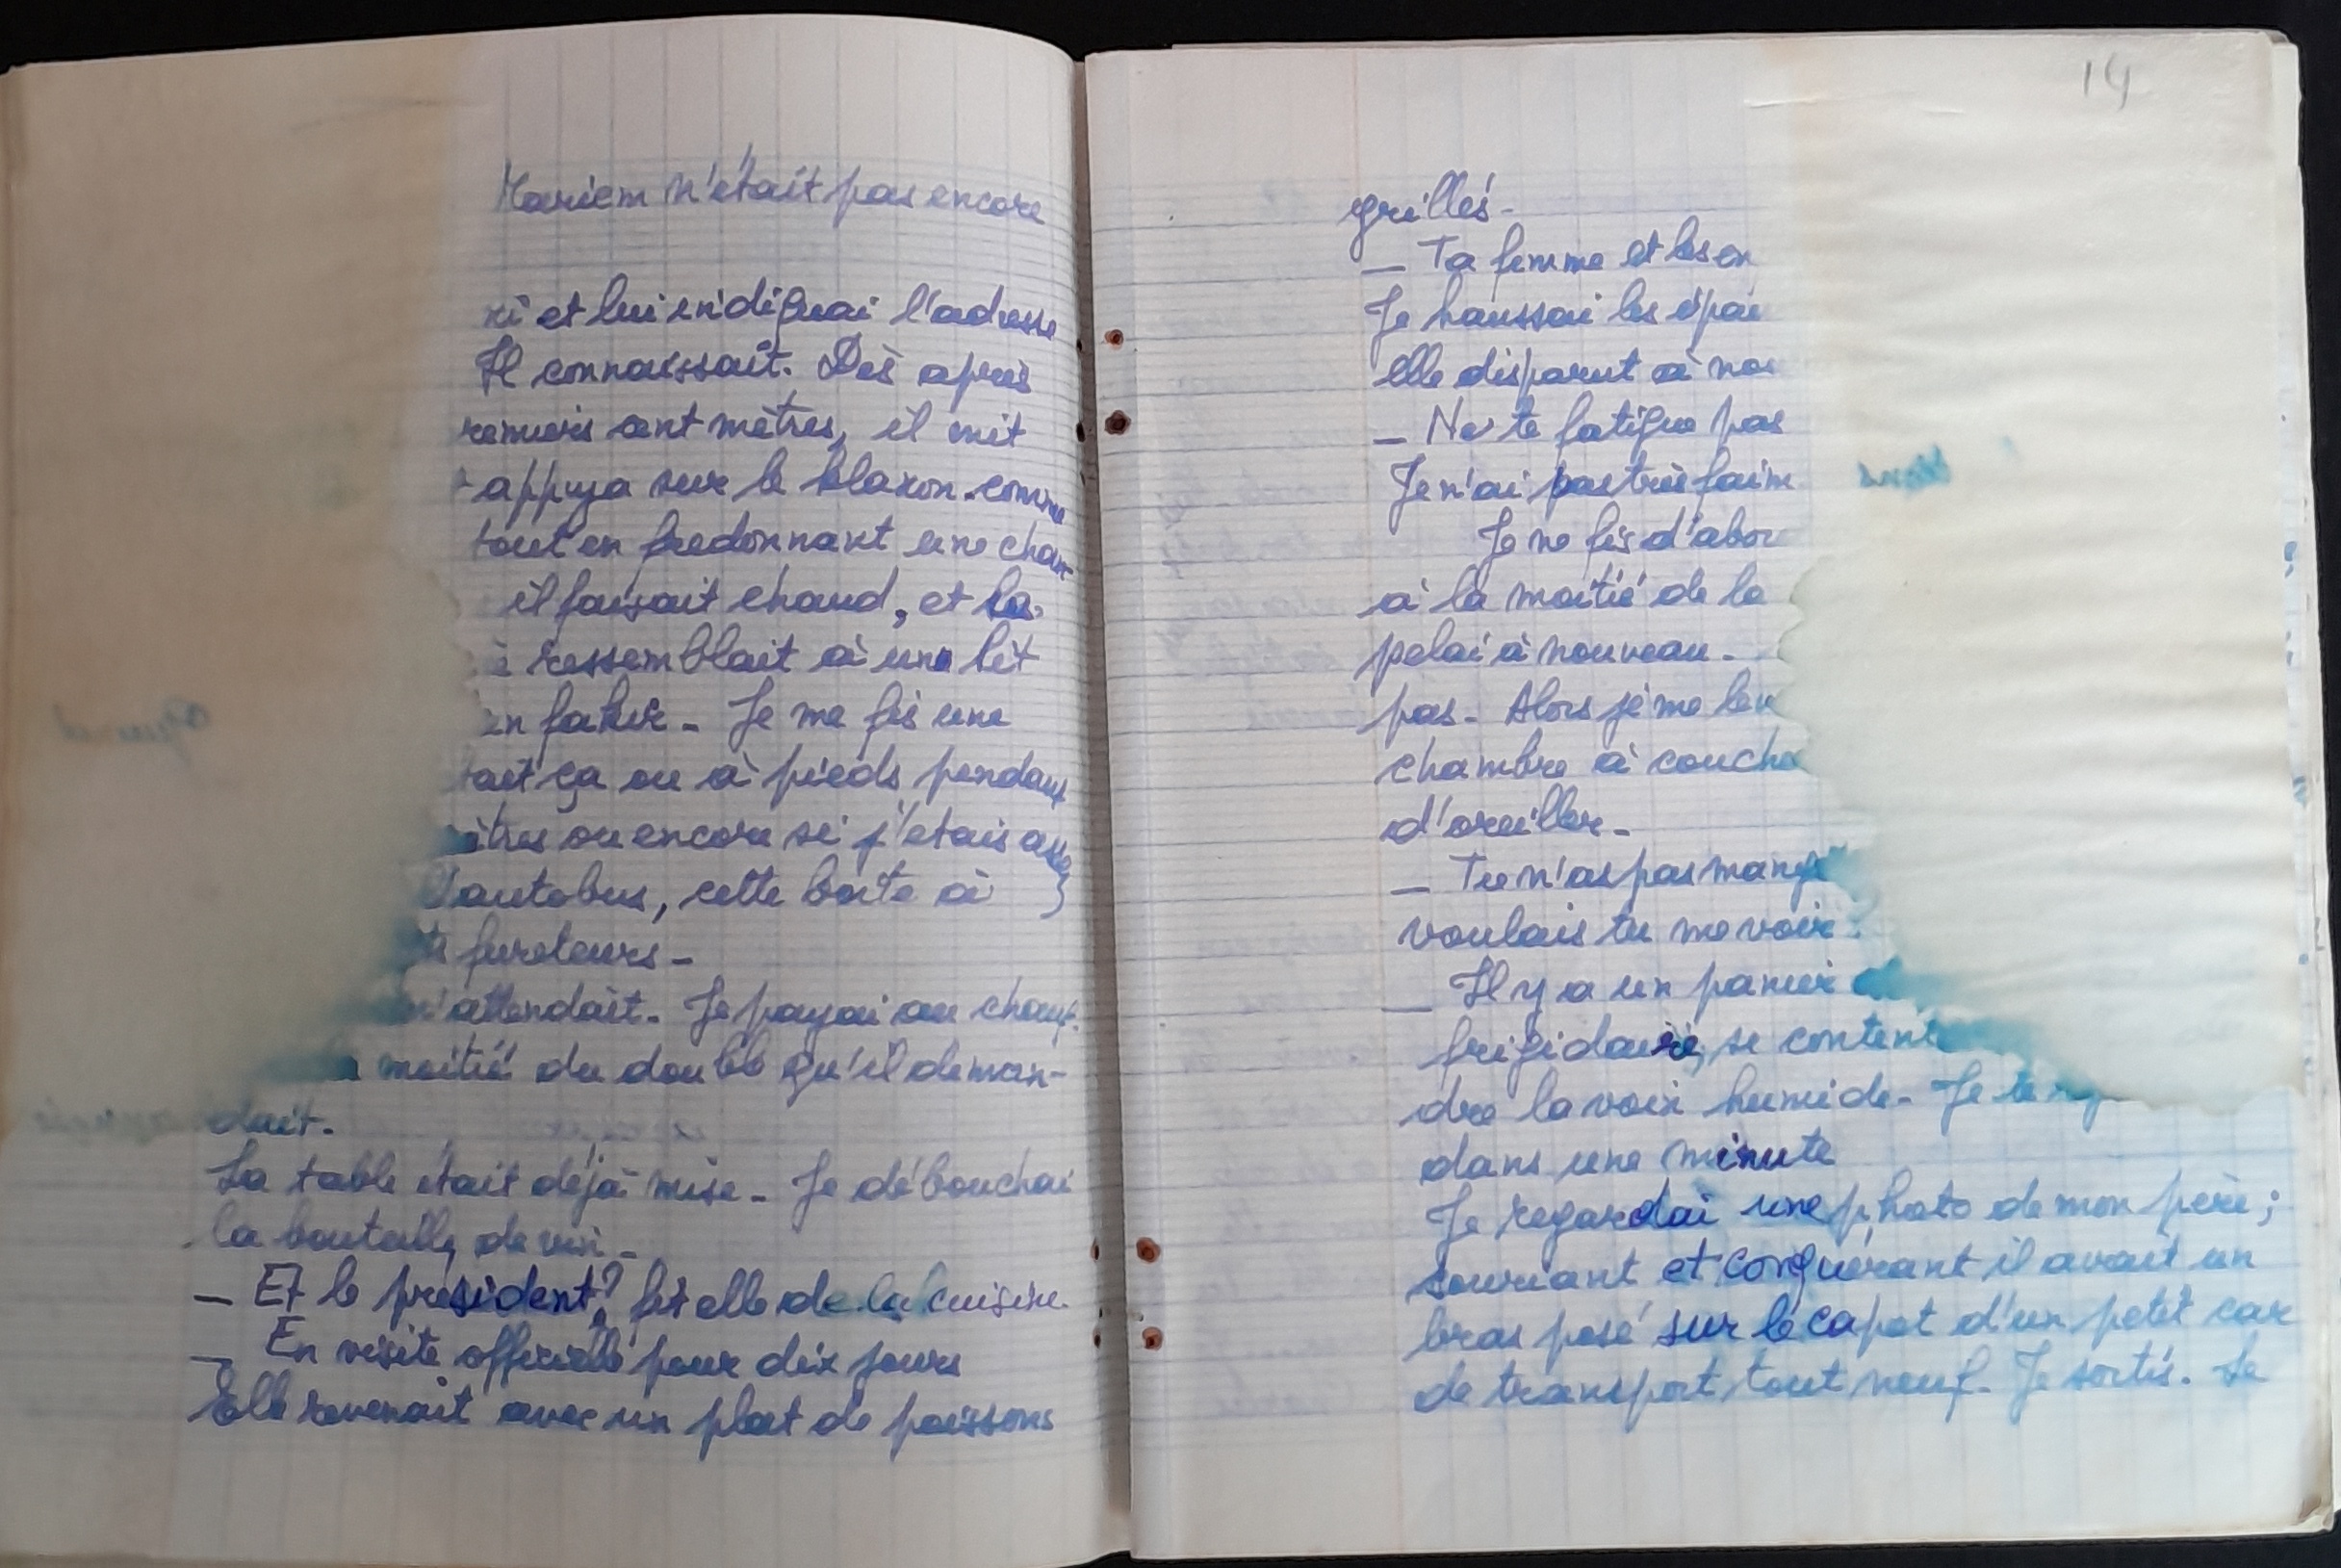 Mariem n'était pas encore
xi et lui indiquai l'adresse
Il connaissait. Dès après
remiers cent mètres, il mit
appuya sur le klaxon comme
tout en fredonnant une chan
il faisait chaud, et la
ressemblait à une lit
en fakir. Je me fis une
tait ça ou à pieds pendant
ètres ou encore si j'étais asse
l'autobus, cette boîte à
fureteurs.
m'attendait. Je payai au chauf.
la moitié du double qu'il deman-
dait.
La table était déjà mise. Je débouchai
la bouteille de vin.
— Et le président? fit elle de la cuisine.
— En visite officielle pour dix jours
Elle revenait avec un plat de poissons
14
grillés.
— Ta femme et les en
Je haussai les épau
elle disparut à nou
— Ne te fatigue pas
Je n'ai pas très faim
Je ne fis d'abor
à la moitié de la
pelai à nouveau.
pas. Alors je me lev
chambre à couche
d'oreiller.
— Tu n'as pas mangé
voulais tu me voir ?
— Il y a un panier
frigidaire, se content
dre la voix humide. Je te
dans une minute
Je regardai une photo de mon père ;
souriant et conquérant il avait un
bras posé sur le capot d'un petit car
de transport tout neuf. Je sortis. Le